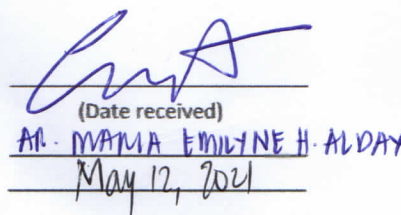 (Date received)
AR. MARIA EMILYNE H. ALDAY
May 12, 2021